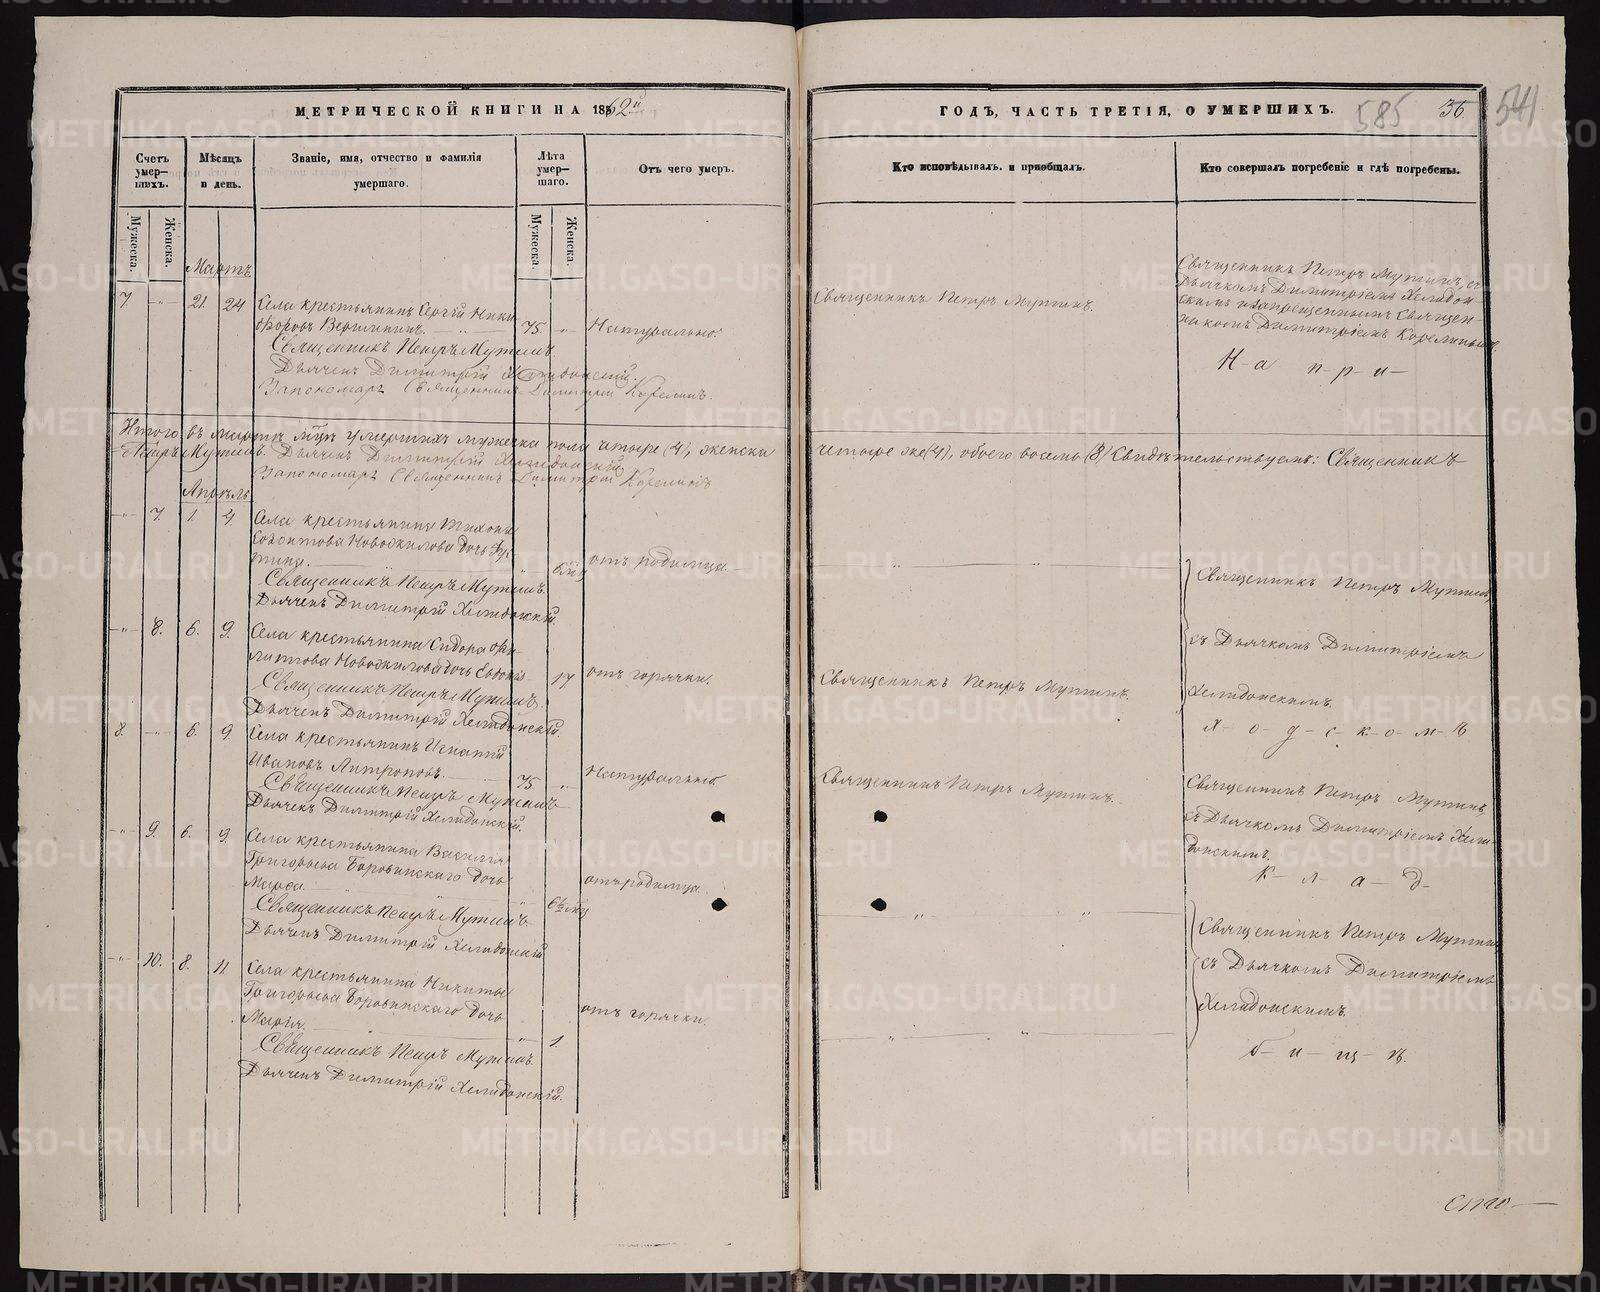 МЕТРИЧЕСКОЙ КНИГИ НА 1862й
ГОДЪ, ЧАСТЬ ТРЕТІЯ, О УМЕРШИХЪ.
585
36
541
Счетъ умер-шихъ.
Мѣсяцъ и день.
Званіе, имя, отчество и фамилія умершаго.
Лѣта умер-шаго.
Отъ чего умеръ.
Кто исповѣдывалъ. и пріобщалъ.
Кто совершалъ погребеніе и гдѣ погребены.
Мужеска.
Женска.
Мужеска.
Женска.
Мартъ
7 -„- 21. 24 Села крестьянинъ Сергій Ники-
форовъ Вершининъ. 75. „ Натурально.
Священникъ Петръ Мутинъ
Дьячекъ Димитрій Хелидонскій.
Запономаря Священникъ Димитрій Корелинъ.
Священникъ Петръ Мутинъ.
Священникъ Петръ Мутинъ, съ
Дьячкомъ Димитріемъ Хелидон-
скимъ и запрещеннымъ Священ-
никомъ Димитріемъ Корелинымъ.
Н-а п-р-и-
Итого въ мартѣ мцѣ умершихъ мужеска пола четыре (4), женска
четыре же (4), обоего восемь (8) Свидѣтельствуемъ: Священникъ
Петръ Мутинъ. Дьячекъ Димитрій Хелидонскій
Запономаря Священникъ Димитрій Корелинъ
Апрѣль
-„- 7. 1. 4. Села крестьянина Тихона
Новожилова дочь Ѳус-
тина. отъ родимца
Священникъ Петръ Мутинъ.
Дьячекъ Димитрій Хелидонскій.
Священникъ Петръ Мутинъ,
-„- 8. 6. 9. Села крестьянина Сидора Фи-
липпова Новожилова дочь Евдокія 17 отъ горячки.
Священникъ Петръ Мутинъ.
Дьячекъ Димитрій Хелидонскій.
Священникъ Петръ Мутинъ.
съ Дьячкомъ Димитріемъ
Хелидонскимъ.
х-о-д-с-к-о-м-ъ
8. -„- 6. 9. Села крестьянинъ Игнатій
Ивановъ Антроповъ. 75. „ Натурально.
Священникъ Петръ Мутинъ
Дьячекъ Димитрій Хелидонскій.
Священникъ Петръ Мутинъ.
Священникъ Петръ Мутинъ,
съ Дьячкомъ Димитріемъ Хели-
донскимъ.
к-л-а-д-
-„- 9. 6. 9. Села крестьянина Василія
Григорьева Боровинскаго дочь
Марѳа. отъ родимца.
Священникъ Петръ Мутинъ.
Дьячекъ Димитрій Хелидонскій
Священникъ Петръ Мутинъ
-„- 10. 8. 11. Села крестьянина Никиты
Григорьева Боровинскаго дочь
Марія. 1. отъ горячки.
Священникъ Петръ Мутинъ
Дьячекъ Димитрій Хелидонскій.
съ Дьячкомъ Димитріемъ
Хелидонскимъ.
б-и-щ-ѣ.
METRIKI.GASO-URAL.RU